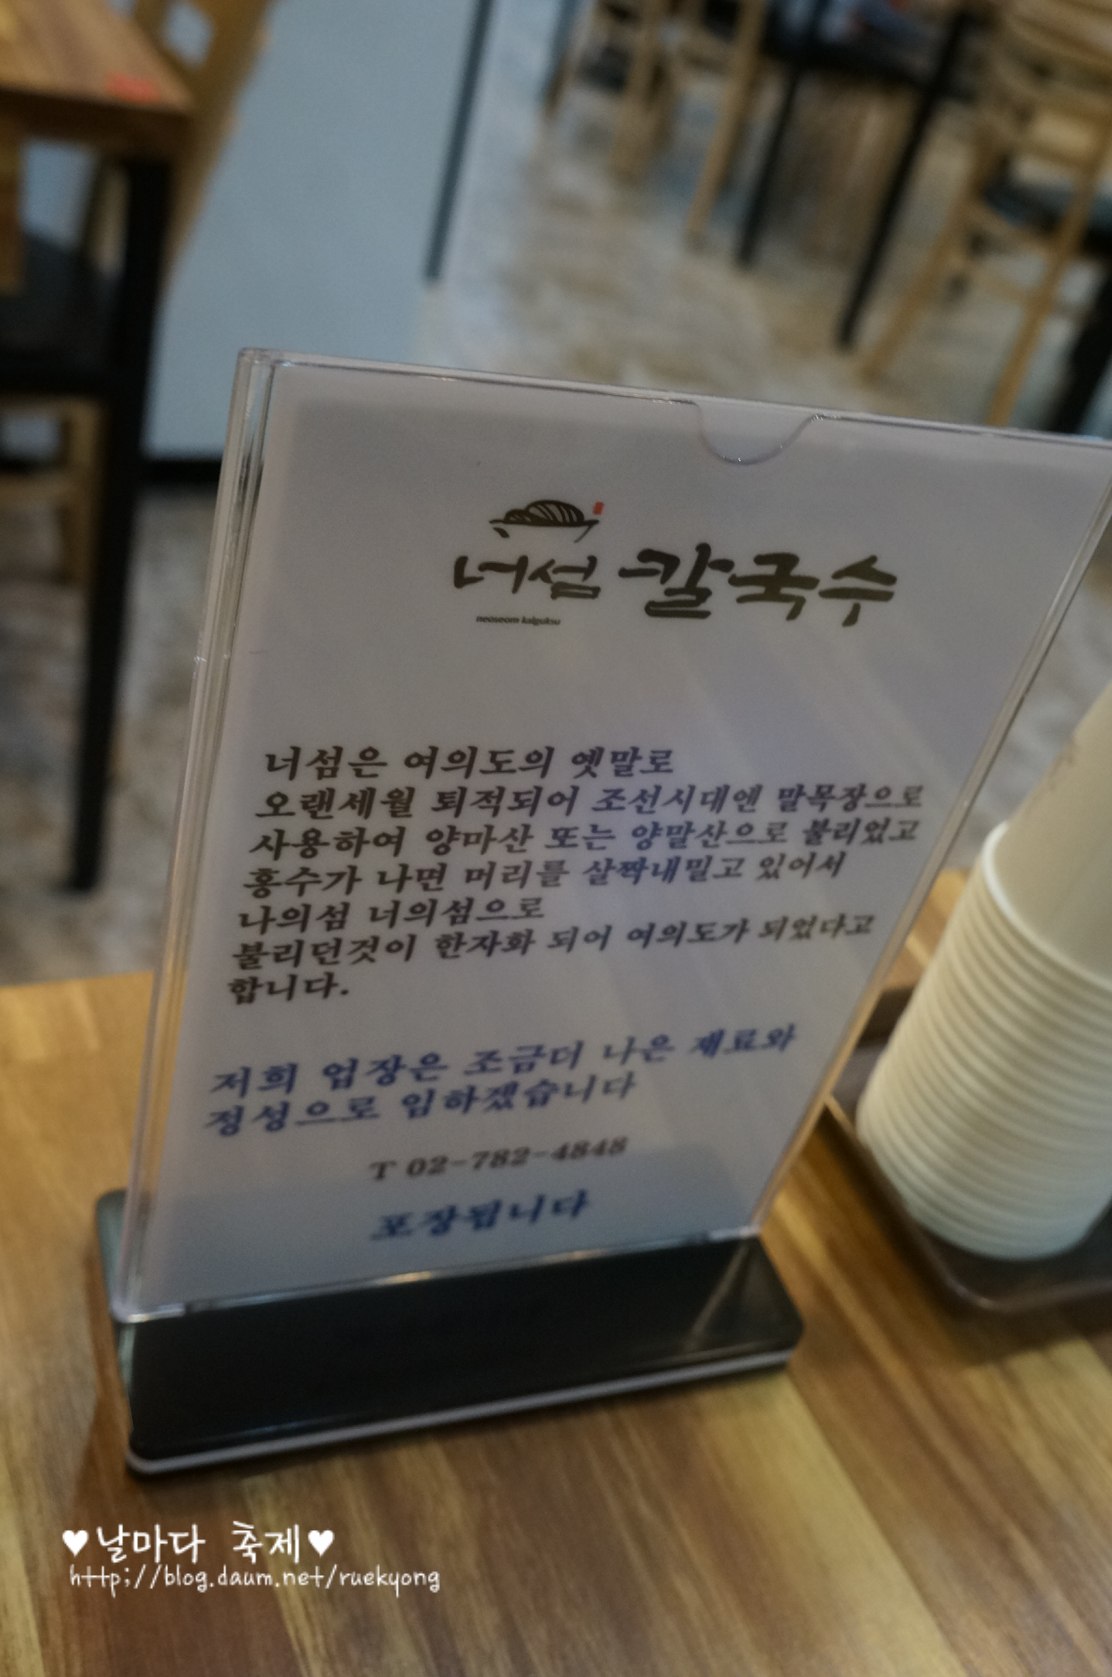 너섬 칼국수
neoseom kalguksu
너섬은 여의도의 옛말로
오랜세월 퇴적되어 조선시대엔 말목장으로
사용하여 양마산 또는 양말산으로 불리었고
홍수가 나면 머리를 살짝내밀고 있어서
나의섬 너의섬으로
불리던것이 한자화 되어 여의도가 되었다고
합니다.
저희 업장은 조금더 나은 재료와
정성으로 임하겠습니다
T 02-782-4848
포장됩니다
♥날마다 축제♥
http;//blog.daum.net/ruekyong